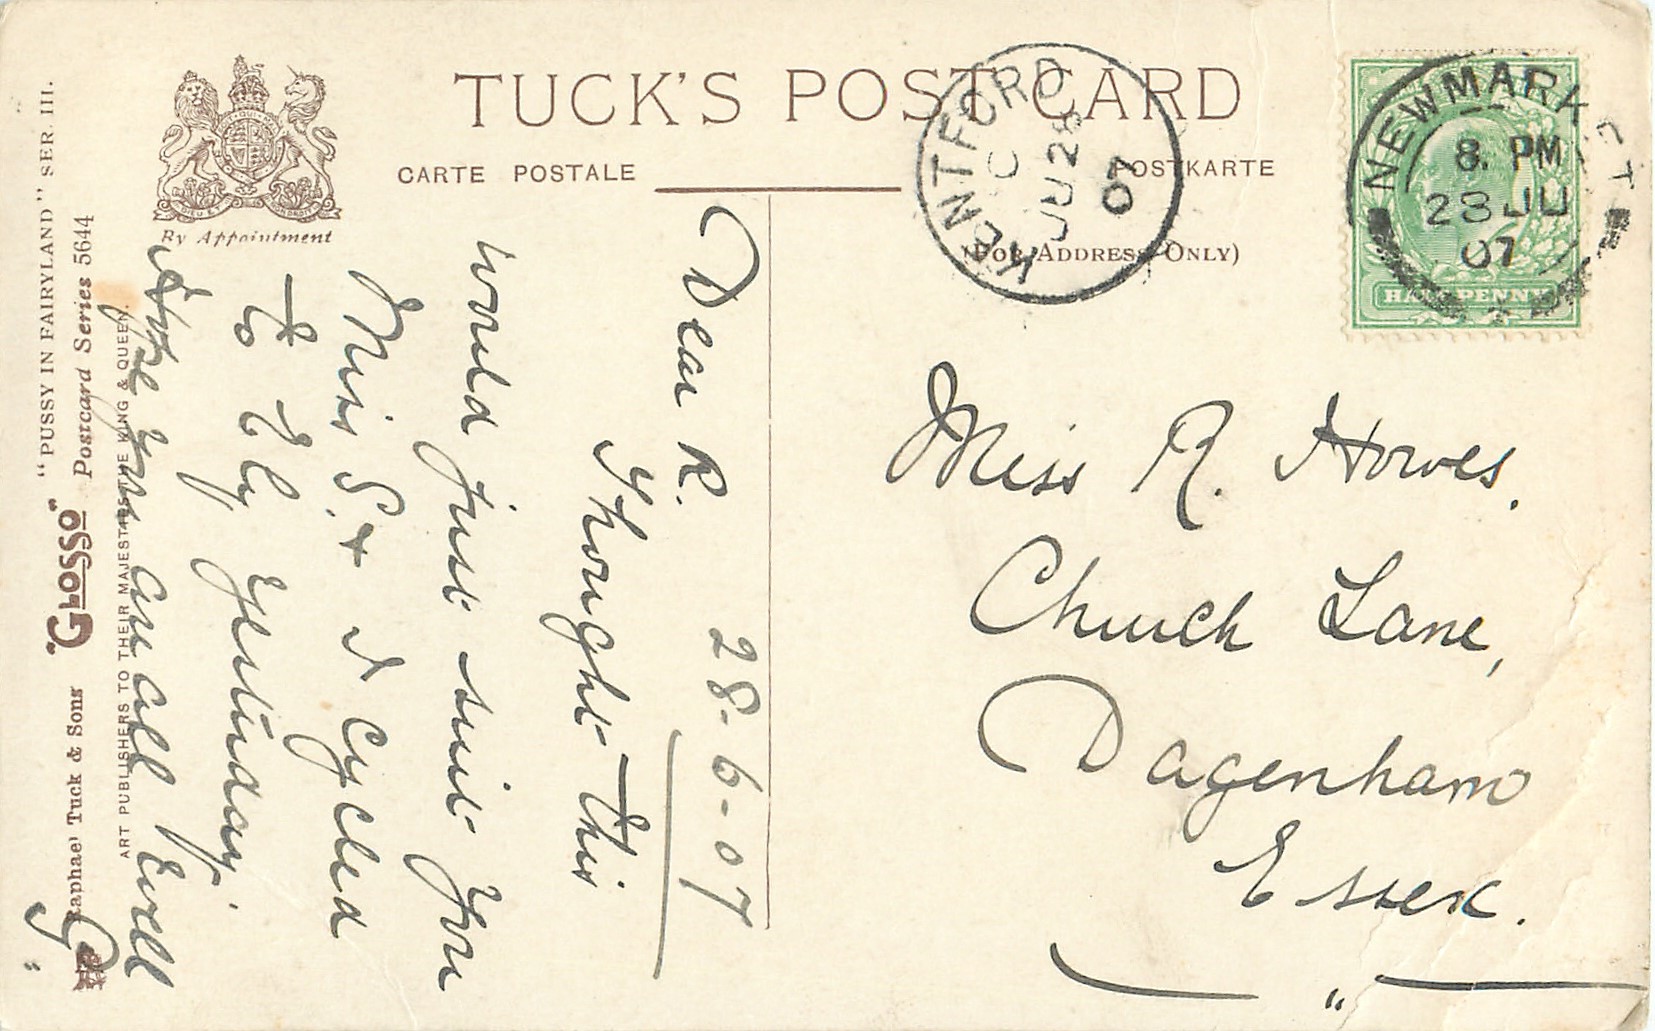 TUCK'S POST CARD
CARTE POSTALE
POSTKARTE
(FOR ADDRESS ONLY)
By Appointment
KENTFORD
C
JU 28
07
NEWMARKET
8. PM
28 JU
07
HALFPENNY
"PUSSY IN FAIRYLAND" SER. III.
Raphael Tuck & Sons "GLOSSO" Postcard Series 5644
ART PUBLISHERS TO THEIR MAJESTIES THE KING & QUEEN.
28-6-07
Dear R.
Thought this
would just suit you
Miss S. & I cycled
to Ely yesterday.
Hope you are all well
Miss R. Howes.
Church Lane,
Dagenham
Essex.